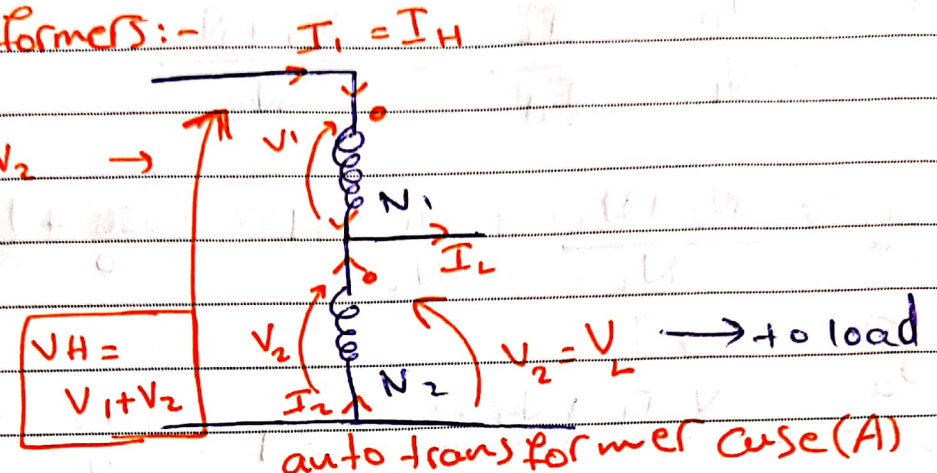 formers:-
I₁ = I_H
V₂ →
V₁
N₁
I_L
VH =
V₁+V₂
V₂
I₂
N₂
V₂ = V_L → to load
auto transformer case(A)